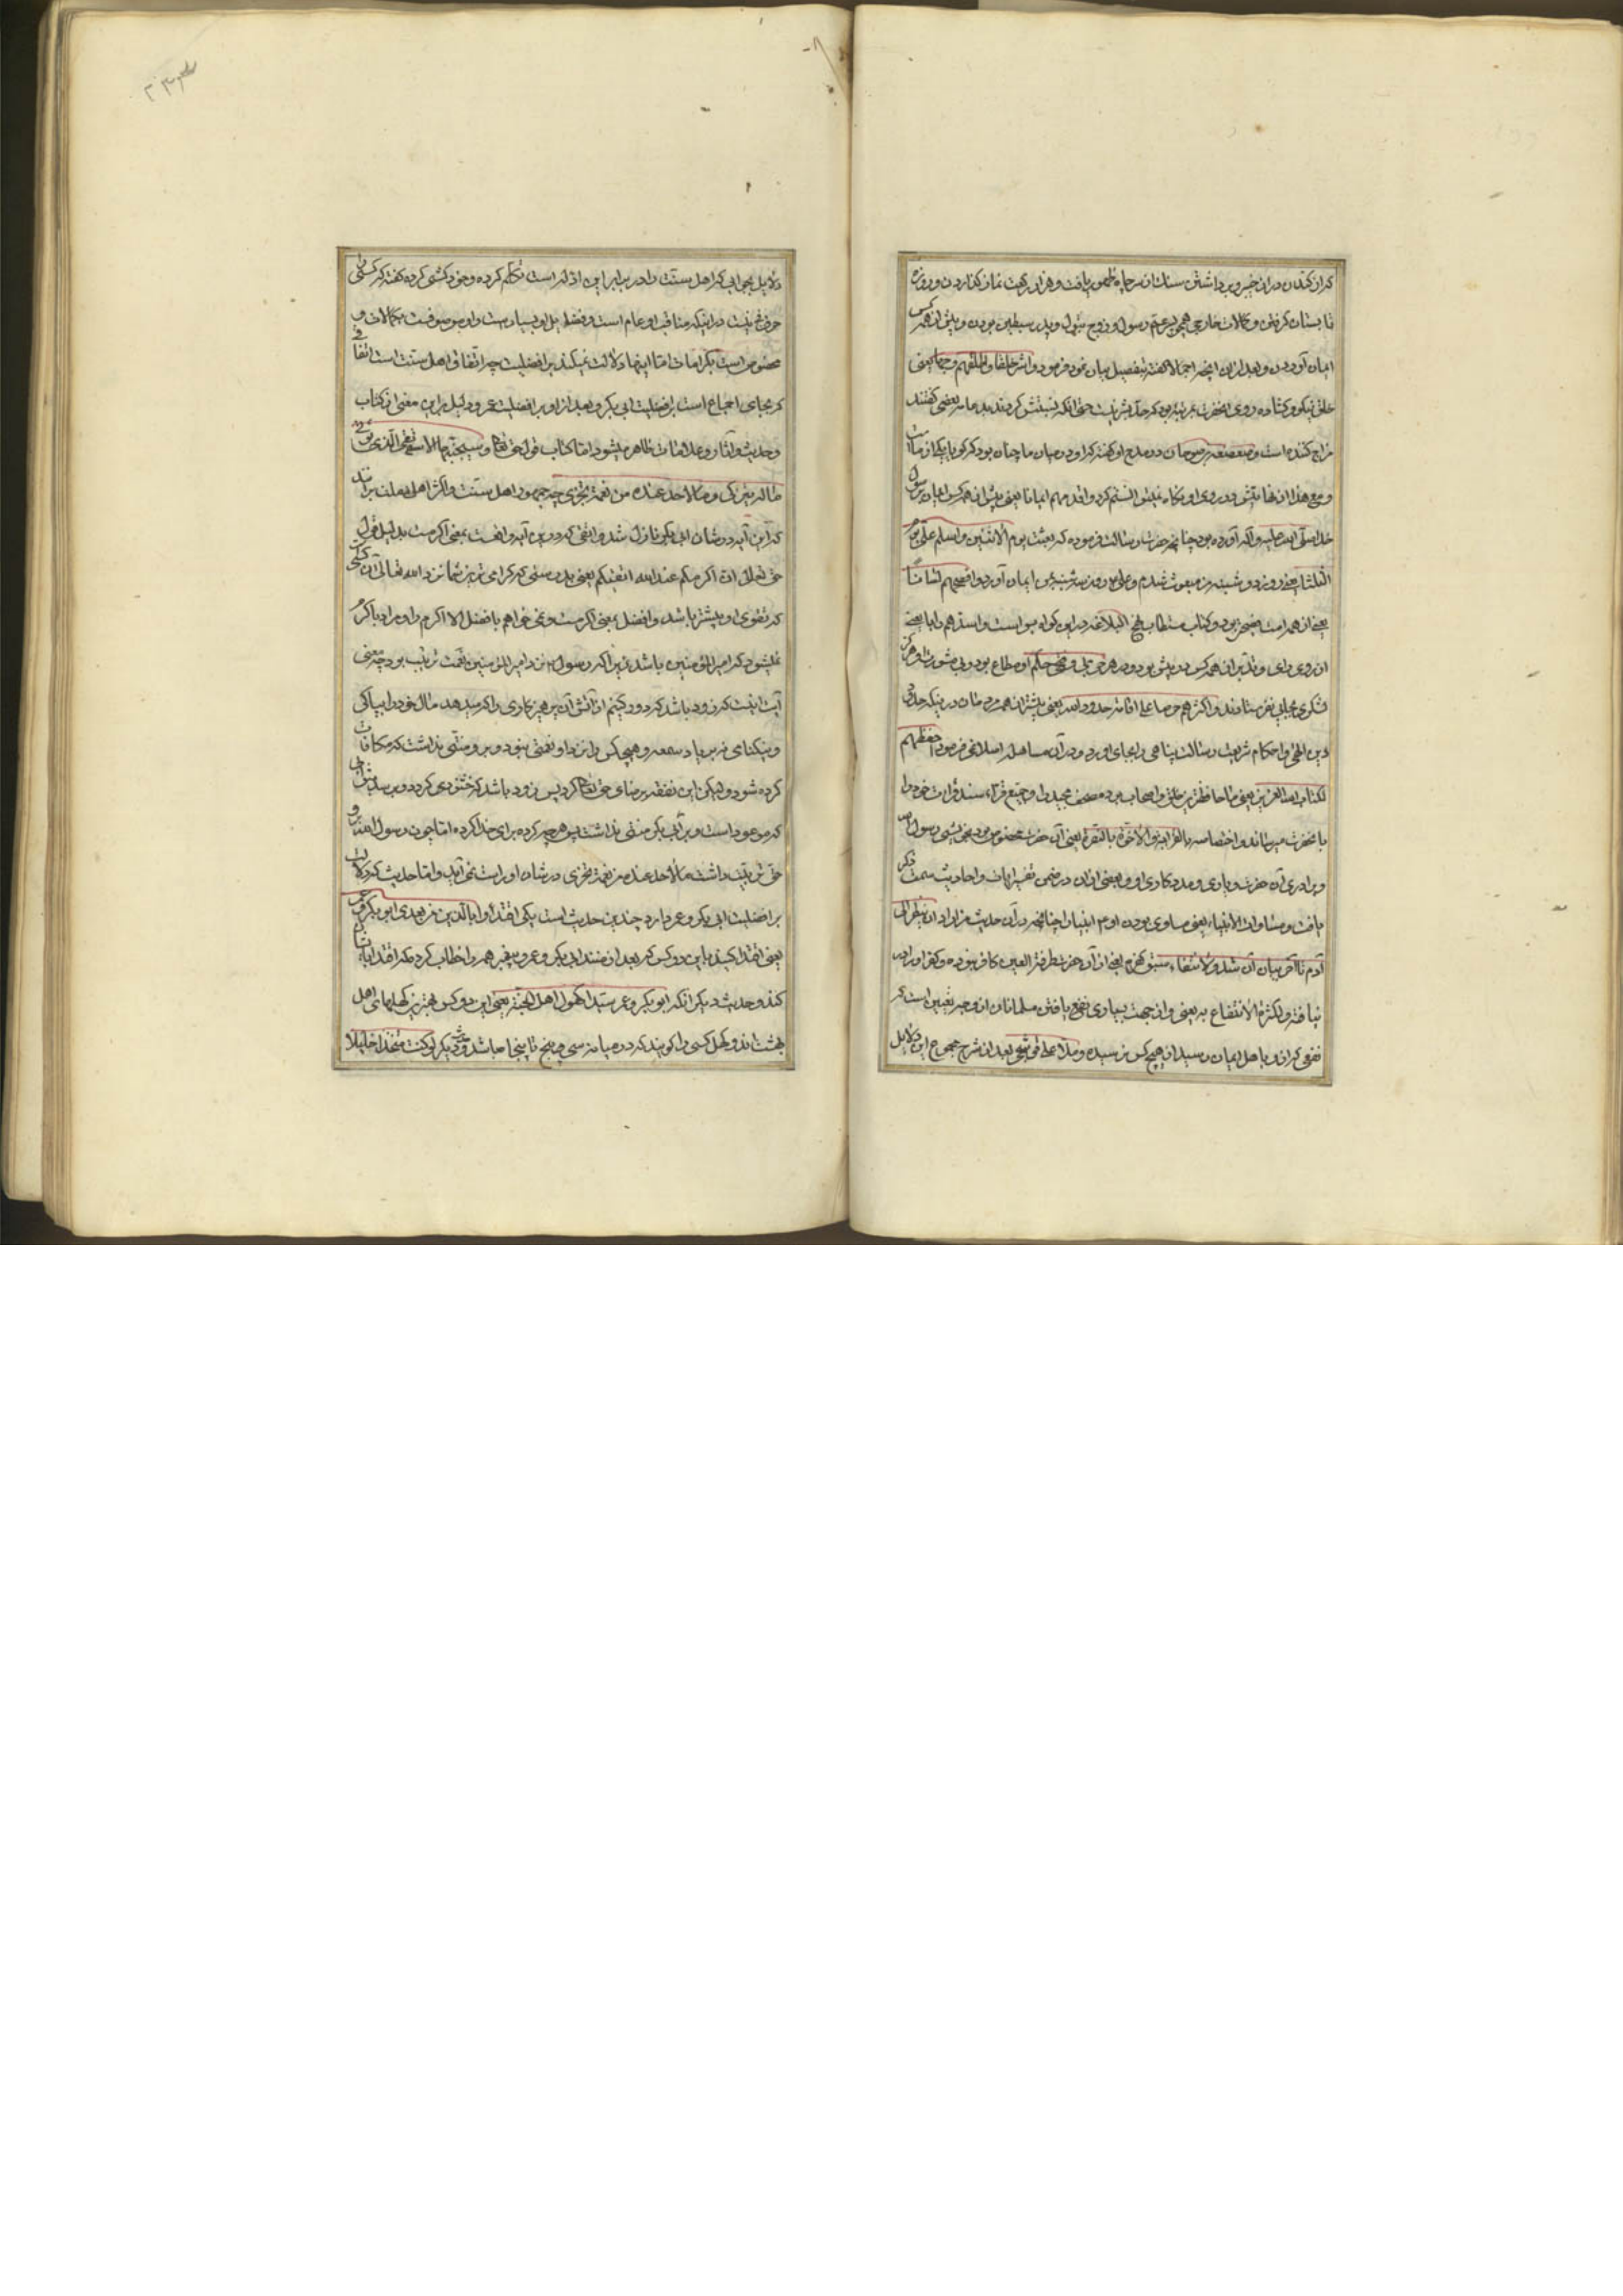 که از کندن در از خیبر و برداشتن سنک از سر چاه ظهور یافت و هزار رکعت نماز کذاردن و روزه
تابستان کرفتن و کمالات خارجی همچو پسر عم رسول و زوج بتول و پدر سبطین بودن و پیش از همه کس
ایمان آوردن و بعد از این آنچه اجمالا کفته بتفصیل بیان نمود فرمود و اشرفهم خلقا و اطلقهم وجها یعنی
خلق نیکو و کشاده روی آنحضرت بمرتبه بود که حد بشر نیست حتی آنکه نسبتش کردند بدعابه بعضی کفتند
مزاح کننده است و صعصعه بن صوحان در مدح او کفته که او در میان ما چنان بود که کویا یکی از ماست
و مع هذا از هیبتش در روی او نکاه نمیتوانستم کرد و اقدمهم ایمانا یعنی پیش از همه کس ایمان برسول
خدا صلی الله علیه و آله آورده بود چنانچه حضرت رسالت فرموده که بعثت یوم الاثنین و اسلم علی یوم
الثلثا یعنی روز دوشنبه من مبعوث شدم و علی روز سه شنبه بمن ایمان آورد و افصحهم لسانا
یعنی از همه امت فصیحتر بود و کتاب مستطاب نهج البلاغه در این کواه مواست و اسدهم رایا یعنی
از روی رای و تدبیر از همه کس در پیش بود و در هر جزئی و کلی حکم او مطاع بود و بی مشورت او هرکز
لشکری بجایی نفرستادند و اکثرهم حرصا علی اقامة حدود الله یعنی بیشتر از همه مردمان در نیکه حدود
دین الهی و احکام شریعت رسالت پناهی را بجای آورد و در آن مساهله اصلا نمی فرمود و احفظهم
لکتاب الله العزیز یعنی ما حافظترین خلق و اصحاب بوده مصحف مجید را و جمیع قراء سند قرائت خود را
بآنحضرت میرسانند و اختصاصه بالقرابة و الاخوة بالنصرة یعنی آن حضرت مخصوص بود بخویشی رسول الله
و برادری آن حضرت و یاری و مددکاری او و بعضی از آن در ضمن تفسیر آیات و احادیث سمت ذکر
یافت و مساواة الانبیاء یعنی مساوی بودن او با انبیا را چنانچه در آن حدیث من اراد ان ینظر الی
آدم تا آخر بیان آن شد و لانتفاء سبق کفره یعنی از آن حضرت طرفة العین کافر نبوده و کفر او را در
نیافته و لکثرة الانتفاع به یعنی و از جهت بسیاری نفع یافتن مسلمانان از او چه یقین است که
نفعی که از او باهل ایمان رسید از هیچ کس نرسیده و ملا علی قوشجی بعد از شرح مجموع این دلایل
دلایل بجوابی که اهل سنت را در برابر این ادله است تکلم کرده و خودکشی کرده کفته که کسی را
حرفی نیست در اینکه مناقب او عام است و فضایل او بسیار است و او موصوفست بکمالات و
مخصوص است بکرامات اما اینها دلالت نمیکند بر افضلیت چرا که اتفاق اهل سنت است اتفاقی
که بجای اجماع است بر افضلیت ابی بکر و بعد از او بر افضلیت عمر و دلیل بر این معنی از کتاب
و حدیث و آثار و علامات ظاهر میشود اما کتاب قول حق تعالی و سیجنبها الاتقی الذی یؤتی
ماله یتزکی و ما لاحد عنده من نعمة تجزی چه جمهور اهل سنت و اکثر اهل ملت برانند
که این آیه در شان ابی بکر نازل شد و اتقی که در این آیه واقعست بمعنی اکرمست بدلیل قول
حق تعالی ان اکرمکم عند الله اتقیکم یعنی بدرستی که کرامی ترین شما نزد الله تعالی آن کسی
که تقوی او بیشتر باشد و افضل بمعنی اکرمست و نمی خواهم بافضل الا اکرم را و مراد باکرم
نمیشود که امیر المؤمنین باشد زیرا که رسول را نزد امیر المؤمنین نعمت تربیت بود چه معنی
آیت اینست که زود باشد که دور کنیم از آتش آن پرهیزکاری را که میدهد مال خود را بپاکی
و نیکنامی نه بریا و سمعه و هیچ کس را نزد او نعمتی نبود و بر او منتی نداشت که مکافات
کرده شود و لیکن این نفقه برضای حق تعالی کرد پس زود باشد که خشنودی کردد و برسد بثوابی
که موعود است و بر ابی بکر منتی نداشت پس هر چه کرده برای خدا کرده اما چون رسول الله بر او
حق تربیت داشت ما لاحد عنده من نعمة تجزی در شان او راست نمی آید و اما حدیث که دلالت
بر افضلیت ابی بکر و عمر دارد چندین حدیث است یکی اقتدوا بالذین من بعدی ابو بکر و عمر
یعنی اقتدا کنید باین دو کس که بعد از منند ابی بکر و عمر و پیغمبر همه را خطاب کرده که اقتدا بایشان
کنند و حدیث دیکر انکه ابو بکر و عمر سیدا کهول اهل الجنة یعنی این دو کس بهترین کهلهای اهل
بهشت اند و کهل کسی را کویند که در میانه سی و پنج تا پنجاه باشد و حدیث دیکر لو کنت متخذا خلیلا